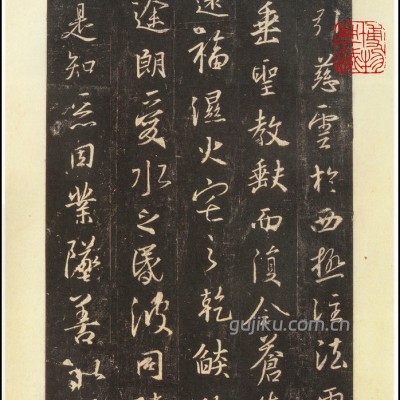 引慈雲於西極注法雨
垂聖教缺而復全蒼生
還福濕火宅之乾燄
途朗愛水之昏波同臻
是知惡因業墜善
gujiku.com.cn